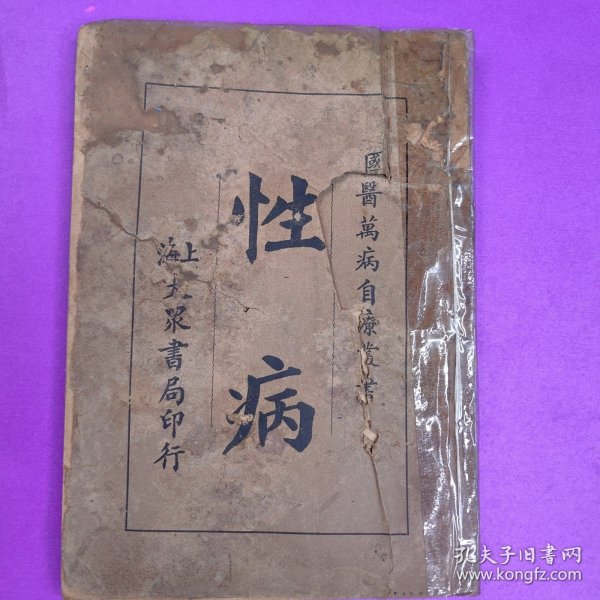 國醫萬病自療叢書
性病
上海大眾書局印行
孔夫子旧书网
www.kongfz.com